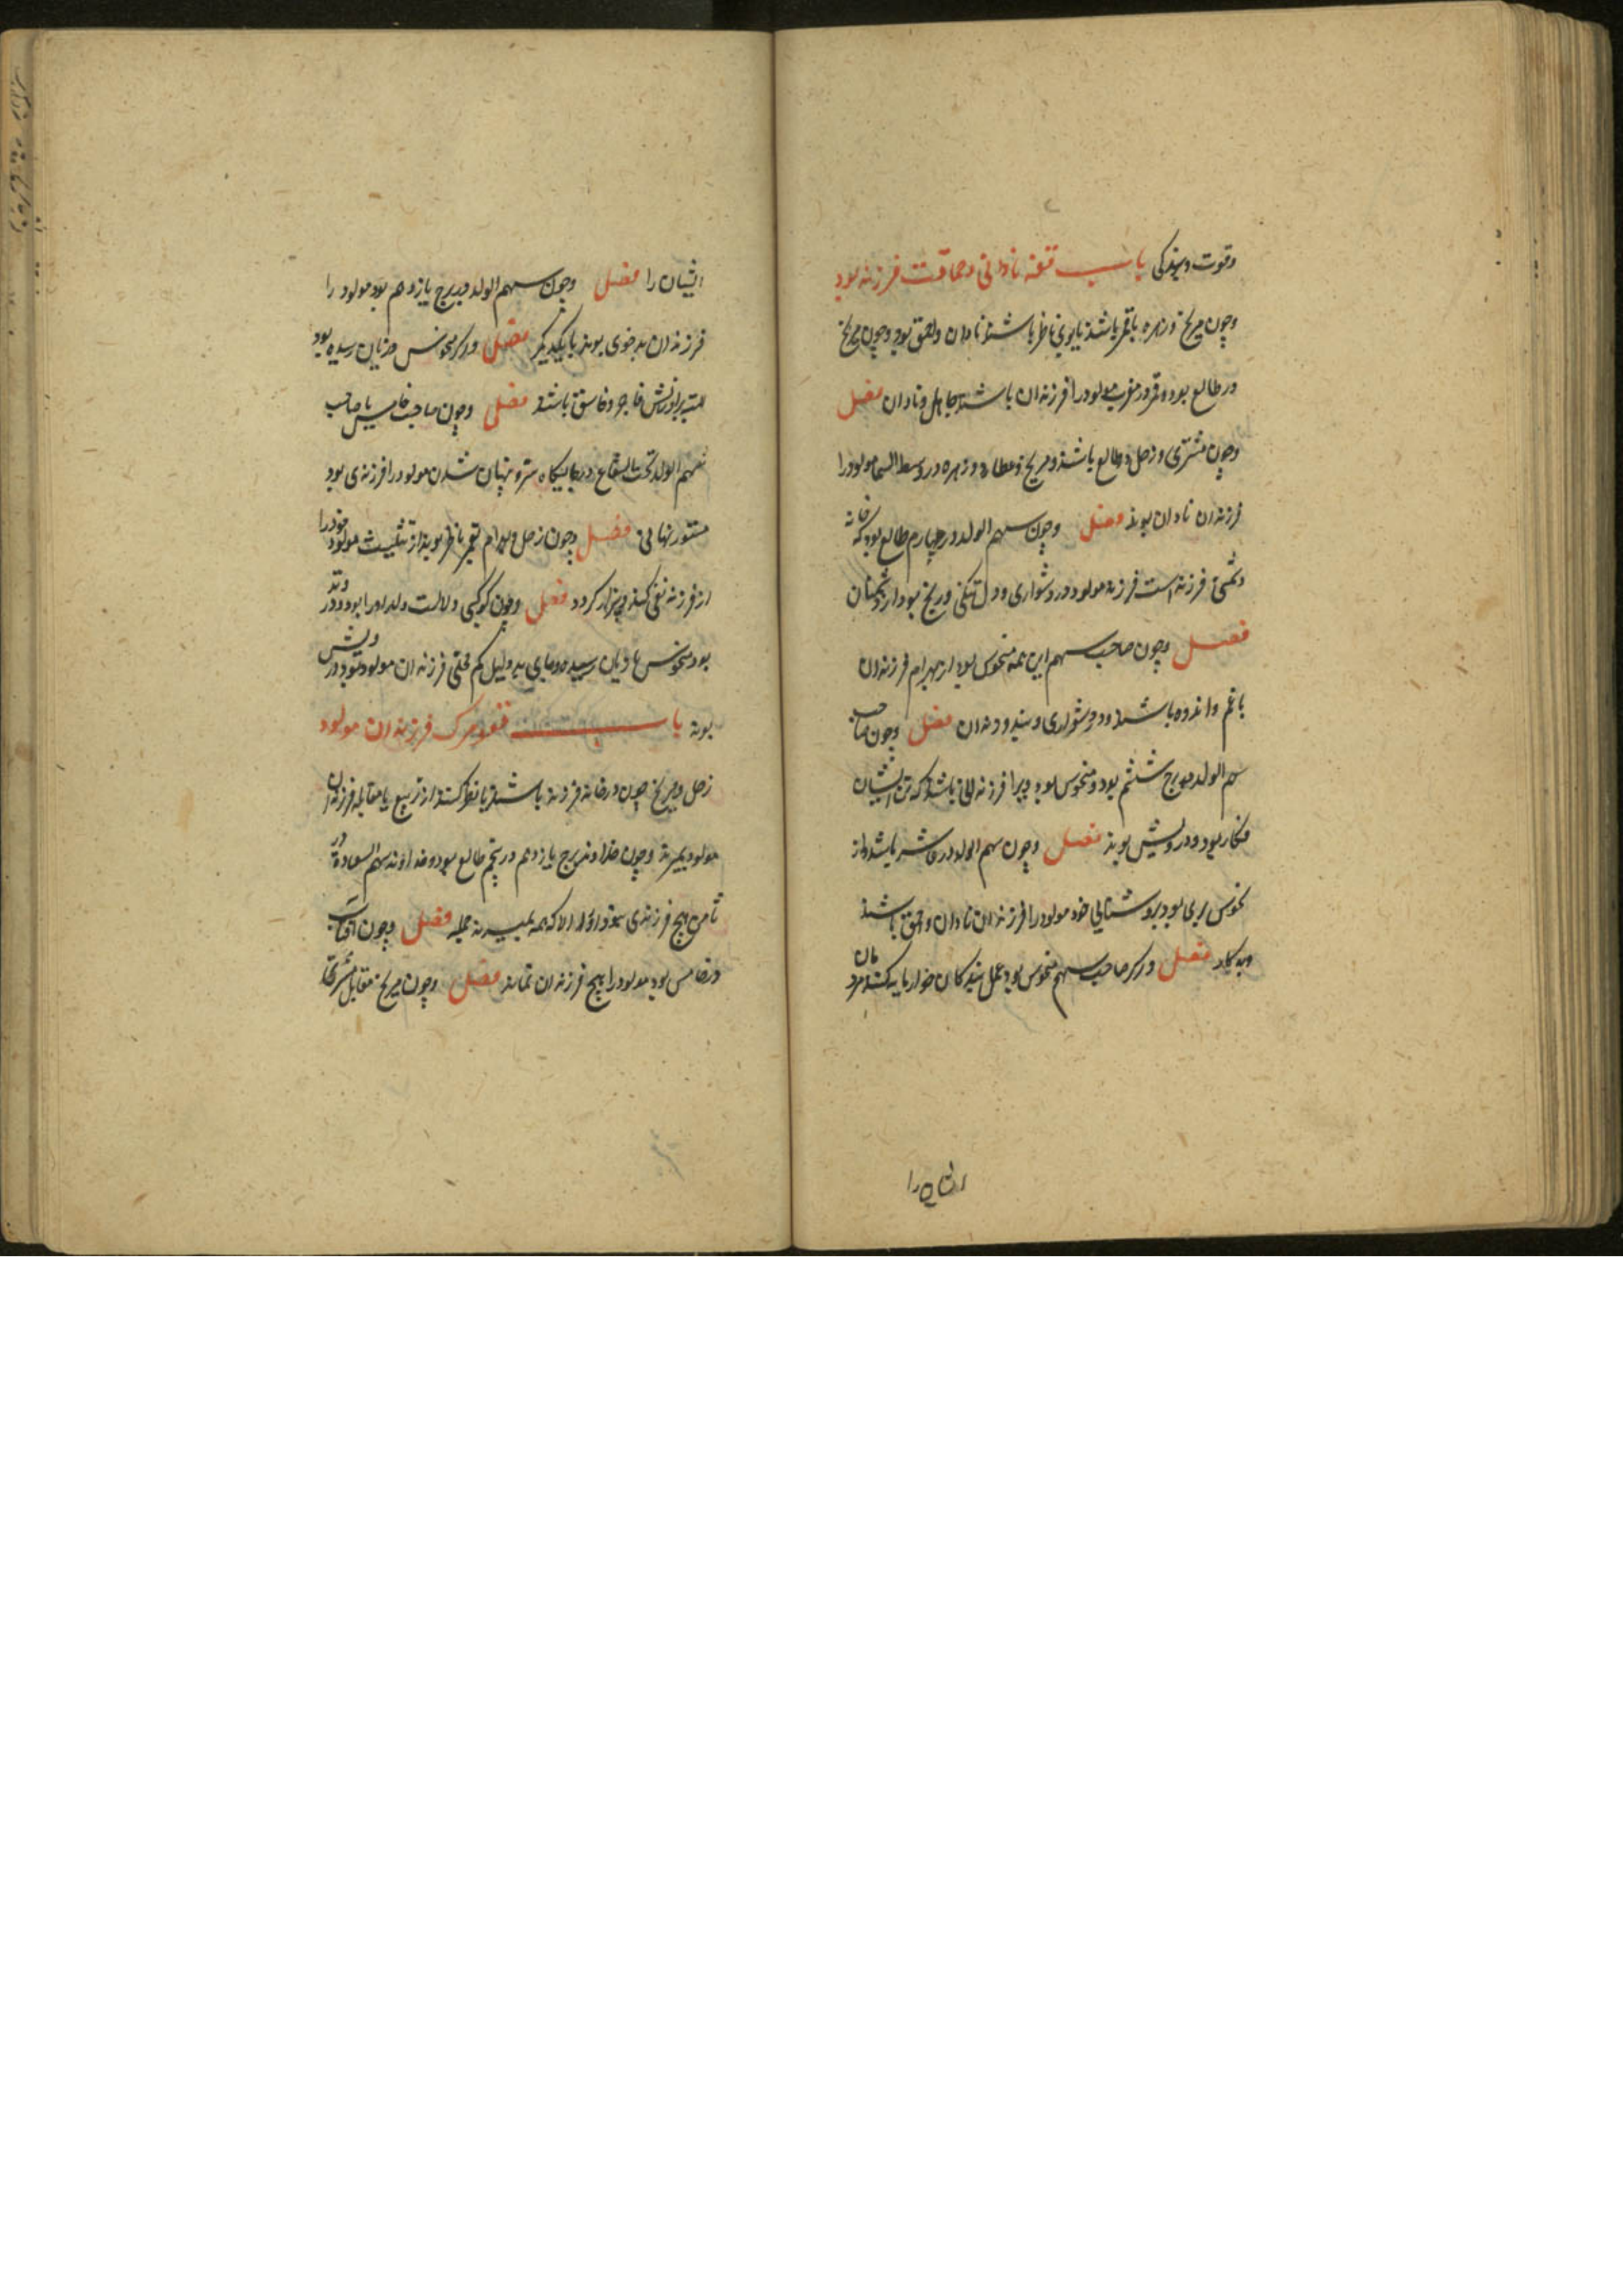 وقوت وبزرگی باب فتنه نادانی وحماقت فرزند بود
وچون مریخ وزهره باقمر باشند یابوی ناظر باشند نادان واحمق بود وچون مریخ
در طالع بود وقمر در مغرب مولود را فرزندان باشند جاهل ونادان فصل
وچون مشتری وزحل در طالع باشند ومریخ وعطارد وزهره در وسط السما مولود را
فرزندان نادان بوند فصل وچون سهم الولد در چهارم طالع بود که خانه
دشمنی فرزند است فرزند مولود در دشواری ودل تنگی ورنج بود از دشمنان
فصل وچون صاحب سهم این همه منحوس بود از بهرام فرزندان
باغم واندوه باشند ودر دشواری وبند وزندان فصل وچون صاحب
سهم الولد در برج ششم بود ومنحوس بود ویرا فرزندانی باشد که تن ایشان
فکار بود ودرویش بوند فصل وچون سهم الولد در عاشر باشد واز
نحوس بری بود بروشنایی خود مولود را فرزندان نادان واحمق باشند
وبدکار فصل واگر صاحب سهم منحوس بود عمل بندگان خوار مایه کنند مردمان
ایشان را
ایشان را فصل وچون سهم الولد در برج یازدهم بود مولود را
فرزندان بدخوی بوند بایکدیگر فصل واگر نحوس زیان رسیده بود
فاجر وفاسق باشند فصل وچون صاحب خامس یا صاحب
سهم الولد تحت الشعاع در جایگاه ستر وپنهان شدن مولود را فرزندی بود
مستور نهانی فصل وچون زحل وبهرام بقمر ناظر بوند از تثلیث مولود خود را
از فرزند نفی کند وبیزار گردد فصل وچون کوکبی دلالت ولد او را بود ودر وتد
بود نحوس زیان رسیده ودر جای بد دلیل کم محلی فرزندان مولود شود ودرویش
بوند باب فتنه ومرگ فرزندان مولود
زحل ومریخ چون در خانه فرزند باشند یا نظر کنند از تربیع یا مقابله فرزندان
مولود بمیرند وچون خداوند برج یازدهم در پنجم طالع بود وخداوند سهم السعادة در
ثامن هیچ فرزندی نبود او را الا که همه بمیرند جمله فصل وچون آفتاب
در خامس بود مولود را هیچ فرزندان نماند فصل وچون مریخ مقابل مشتری